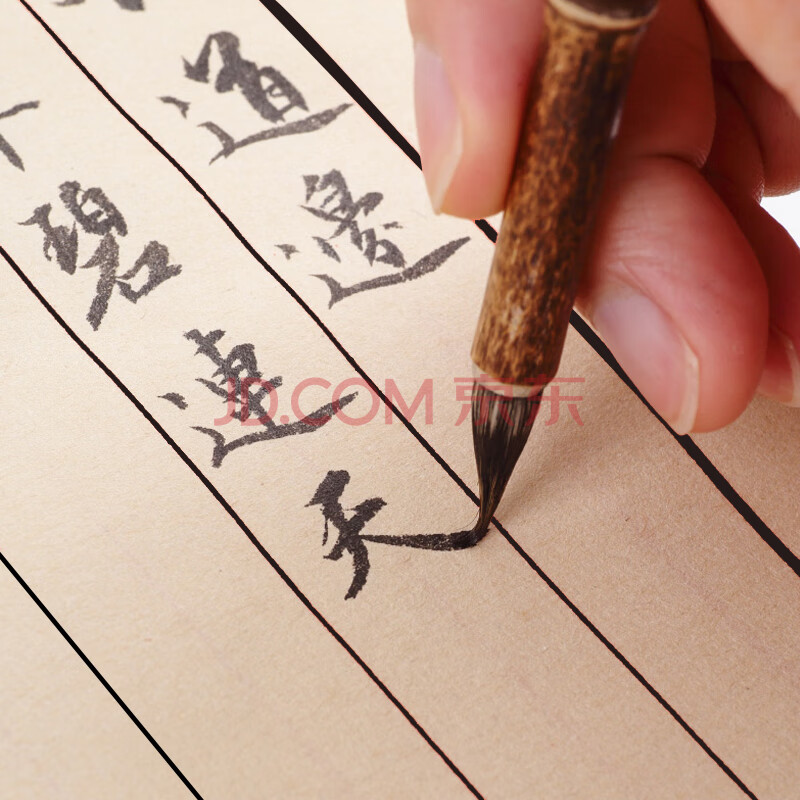 道邊
碧連天
JD.COM 京东